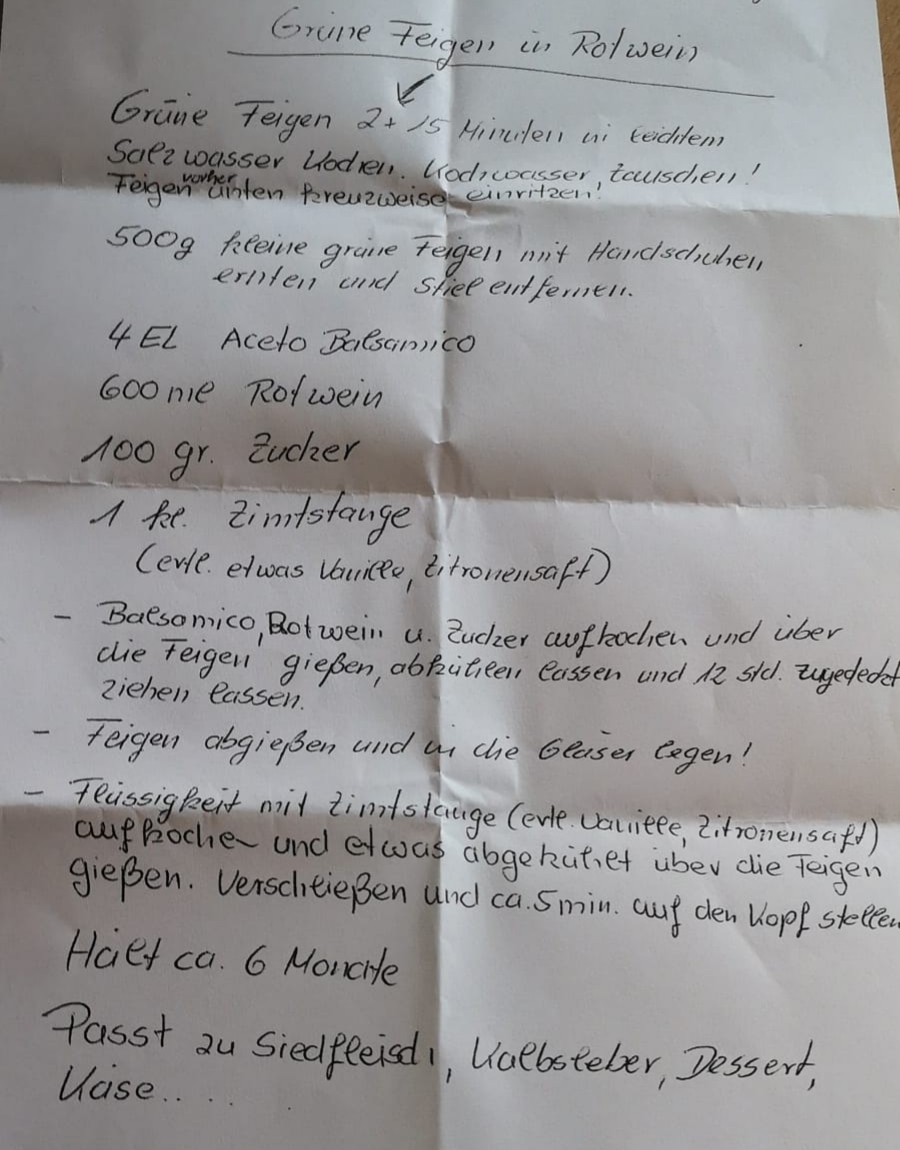 Grüne Feigen in Rotwein
Grüne Feigen 2+ 15 Minuten in leichtem
Salzwasser kochen. Kochwasser tauschen!
Feigen vorher unten kreuzweise einritzen!
500g kleine grüne Feigen mit Handschuhen
ernten und Stiel entfernen.
4 EL Aceto Balsamico
600 ml Rotwein
100 gr. Zucker
1 kl. Zimtstange
(evtl. etwas Vanille, Zitronensaft)
- Balsamico, Rotwein u. Zucker aufkochen und über
die Feigen gießen, abkühlen lassen und 12 std. zugedeckt
ziehen lassen.
- Feigen abgießen und in die Gläser legen!
- Flüssigkeit mit Zimtstange (evtl. Vanille, Zitronensaft)
aufkochen und etwas abgekühlt über die Feigen
gießen. Verschließen und ca. 5 min. auf den Kopf stellen
Hält ca. 6 Monate
Passt zu Siedfleisch, Kalbsleber, Dessert,
Käse....